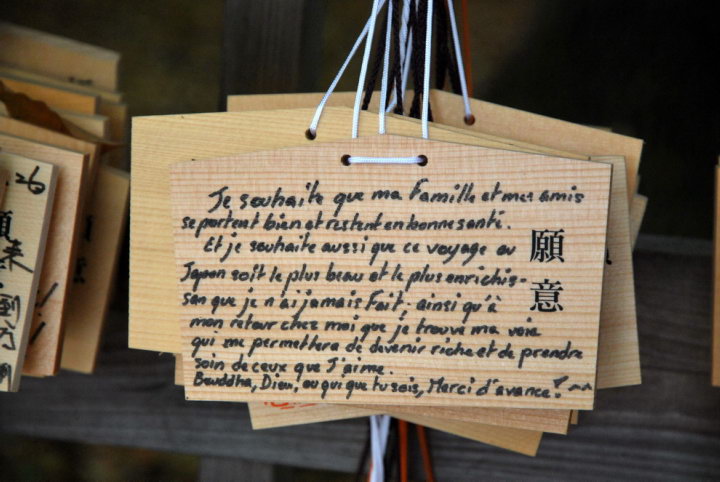 Je souhaite que ma Famille et mes amis
se portent bien et restent en bonne santé.
Et je souhaite aussi que ce voyage au
Japon soit le plus beau et le plus enrichis-
san que je n'ai jamais Fait. ainsi qu'à
mon retour chez moi que je trouve ma voie
qui me permettera de devenir riche et de prendre
soin de ceux que J'aime.
Bouddha, Dieu, ou qui que tu sois, Merci d'avance!
願意
26
願
来